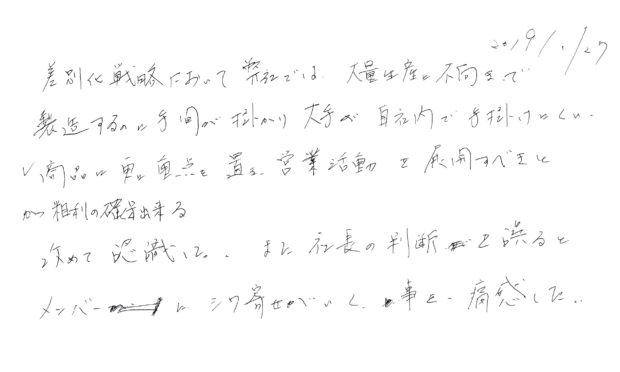 2019/1/27
差別化戦略において弊社では、大量生産に不向きで
製造するのに手間が掛かり大手が自社内で手掛けにくい、
商品に更に重点を置き、営業活動を展開すべきと
かつ粗利の確保出来る
改めて認識した。また社長の判断を誤ると
メンバーにシワ寄せがいく、事を痛感した。